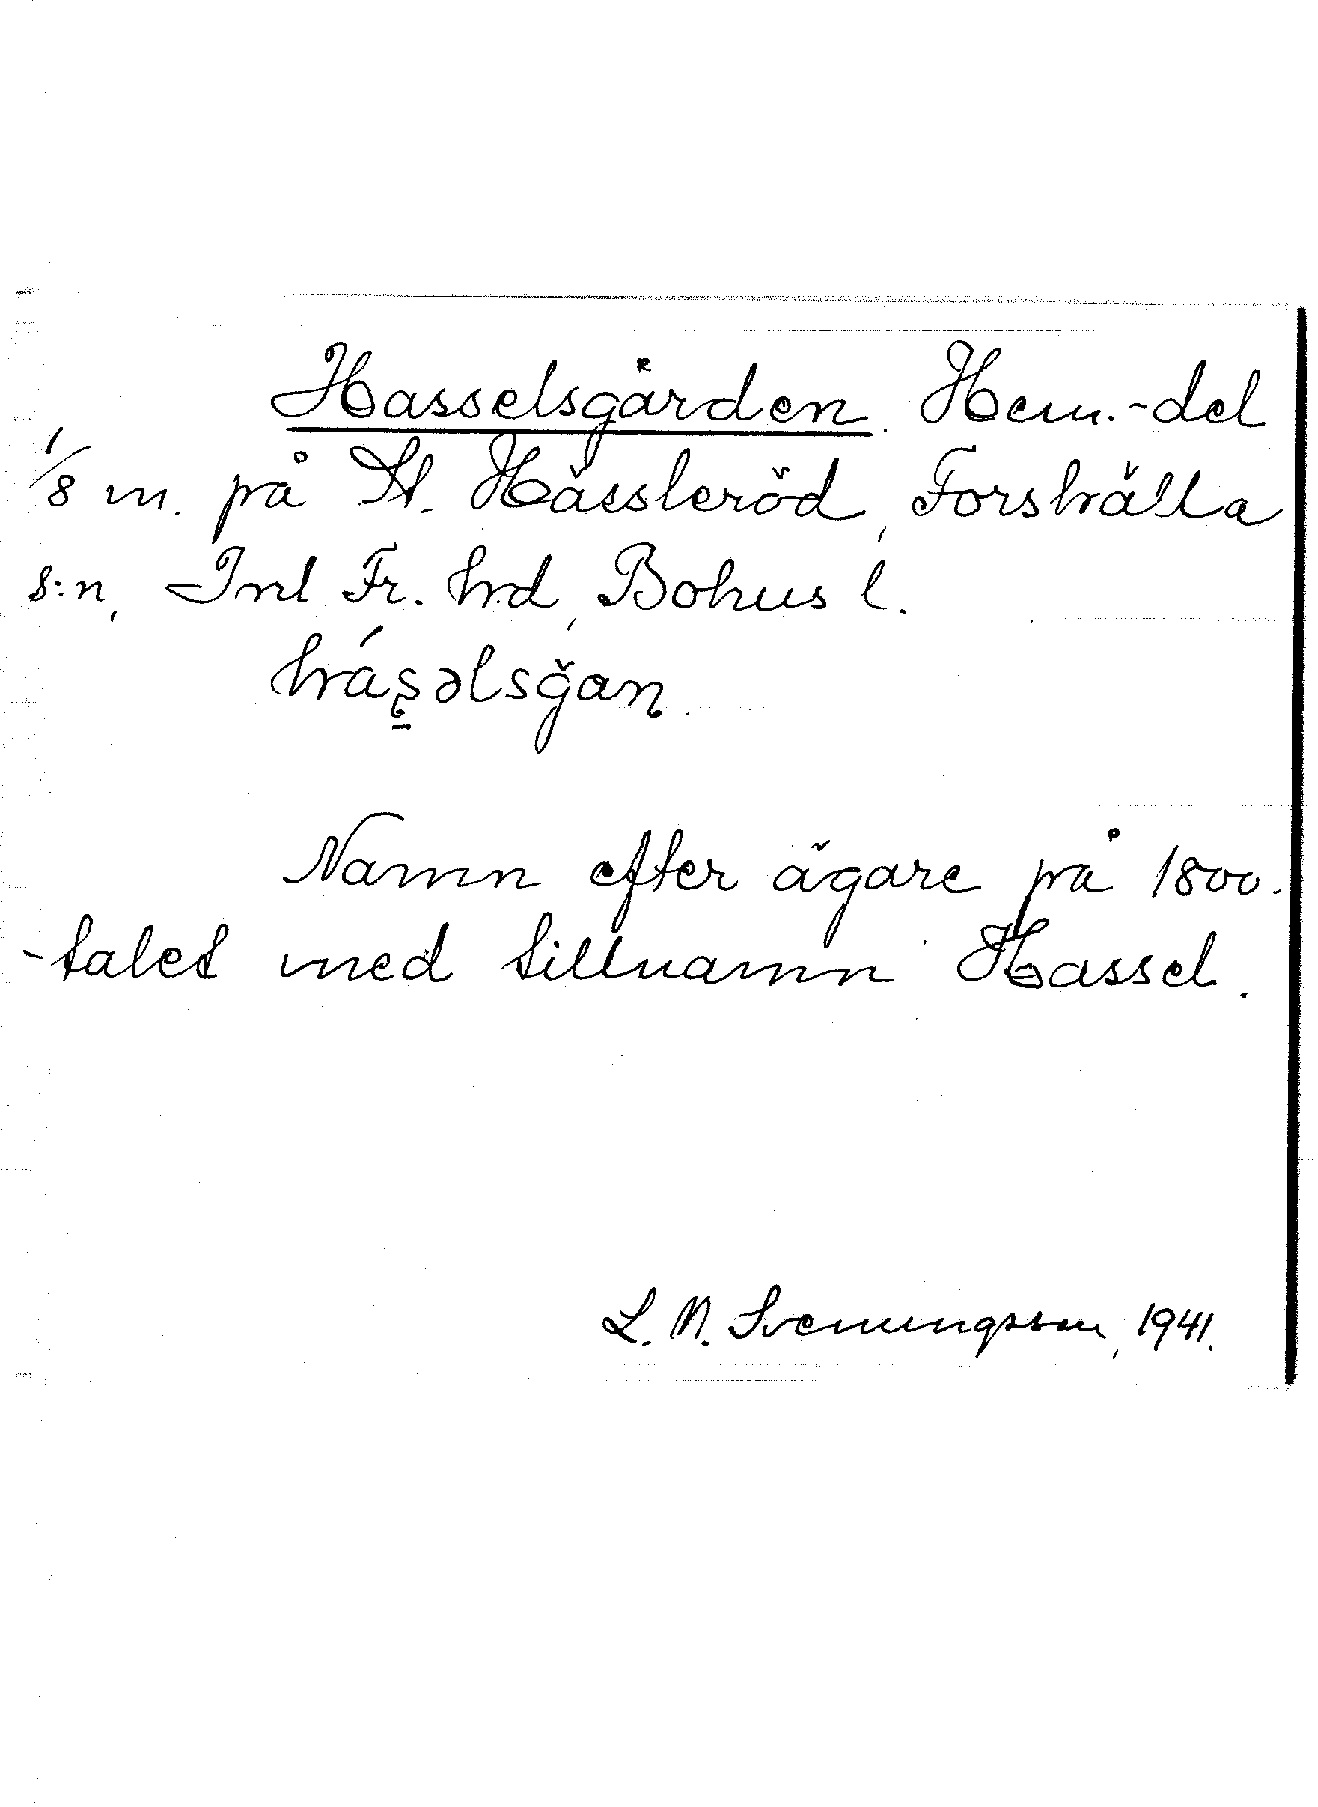 Hasselsgården. Hem.-del
1/8 m. på St. Hässleröd, Forshälla
s:n, Inl. Fr. hrd, Bohus l.
Namn efter ägare på 1800-
-talet med tillnamn Hassel.
L. N. Svenungsson, 1941.